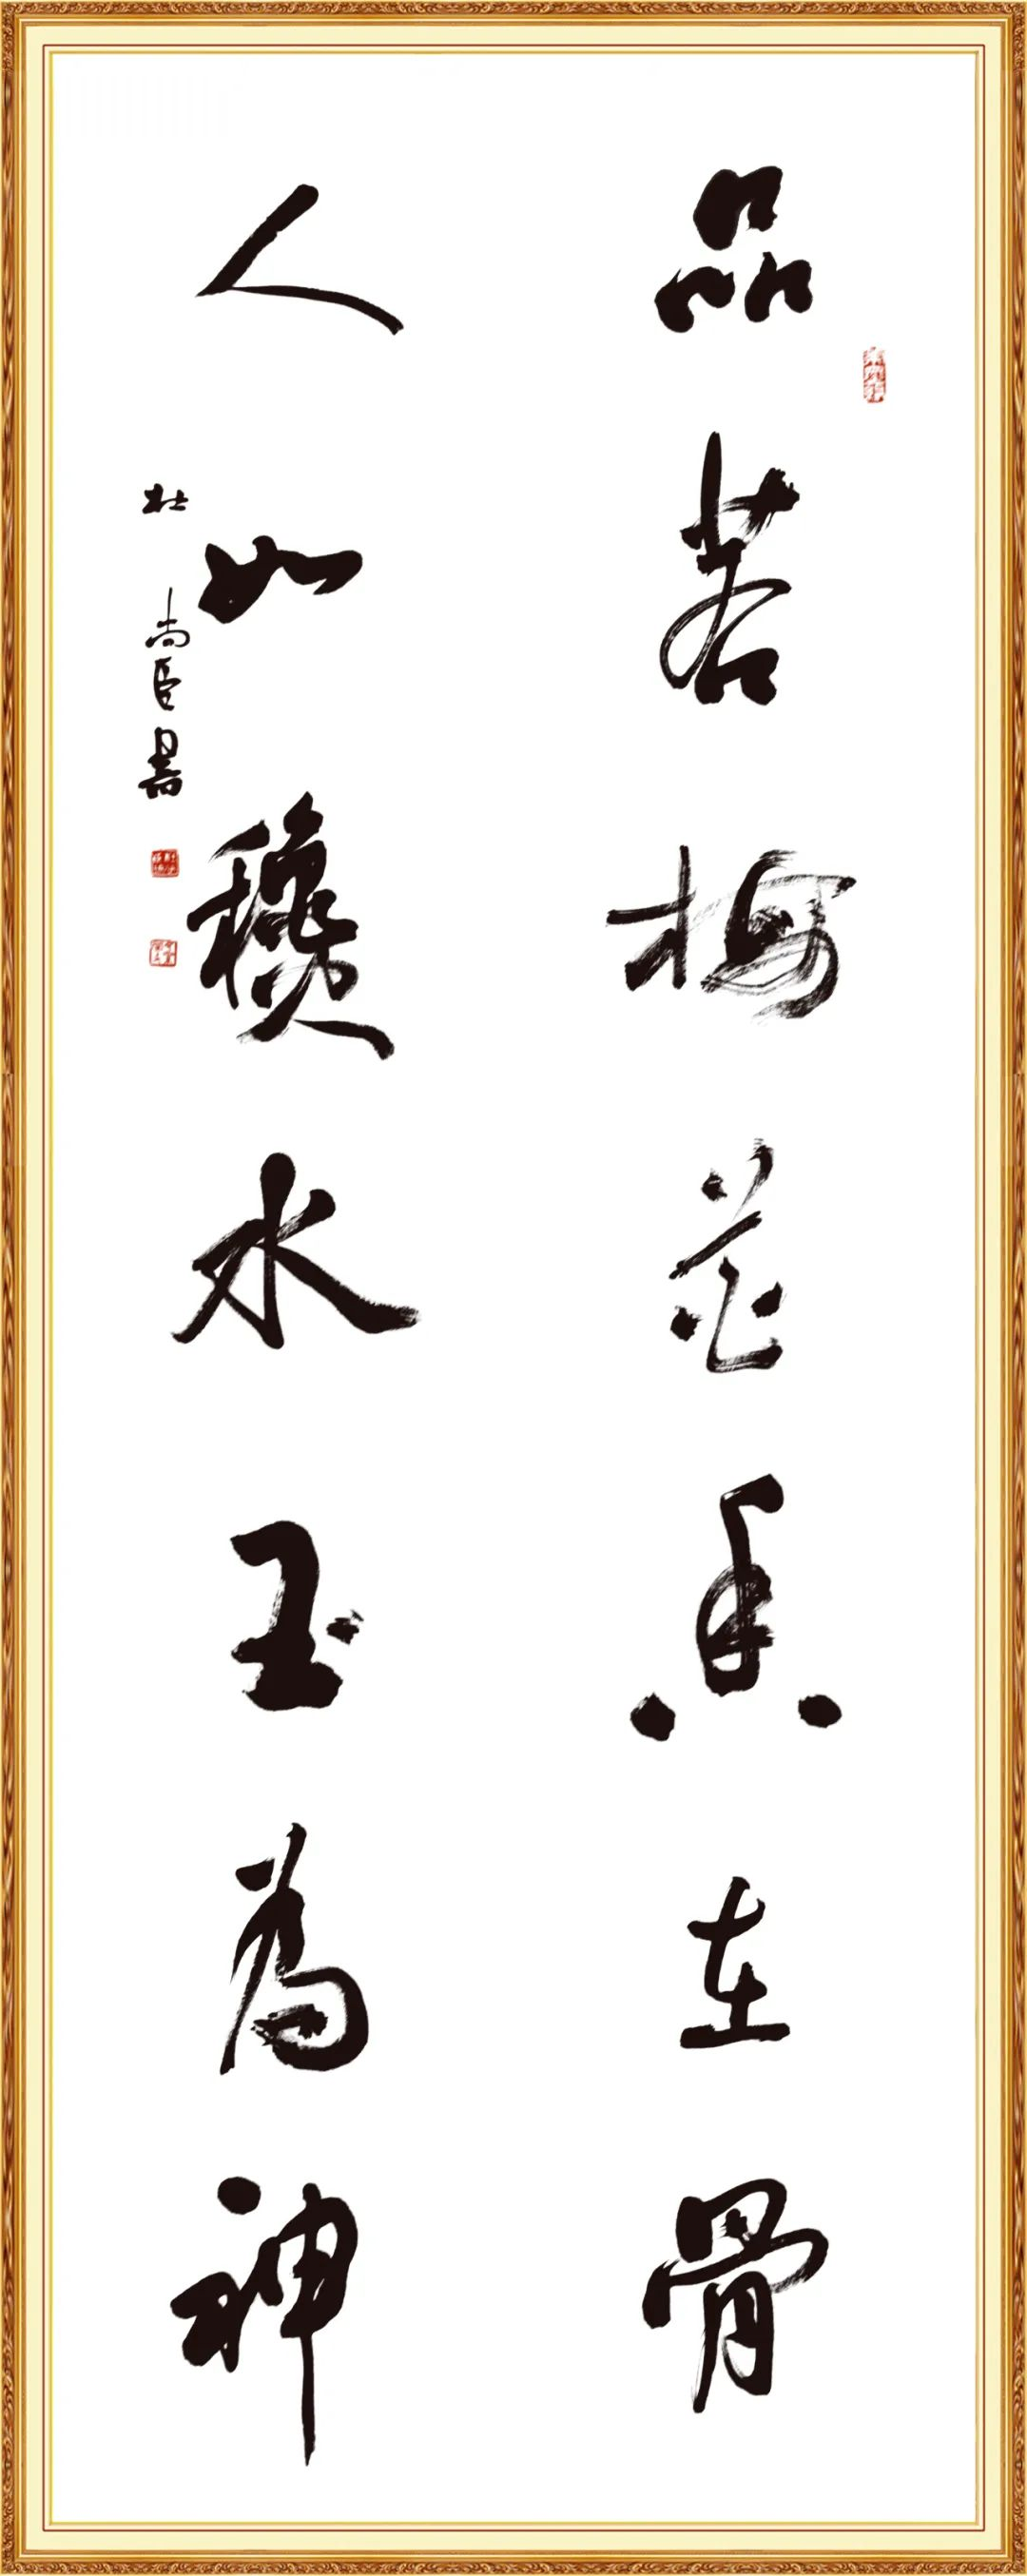 品若梅花香在骨
人如秋水玉為神
杜尚臣書